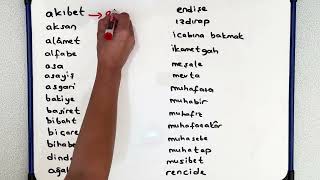 akıbet
aksan
alâmet
alfabe
asa
asayiş
asgari
bakiye
basiret
bibaht
biçare
bihabe
dinda
ağa
endişe
ızdırap
icabına bakmak
ikametgah
meşale
mevta
muhafaza
muhabir
muhafız
muhafazakâr
muhasebe
muhatap
musibet
rencide